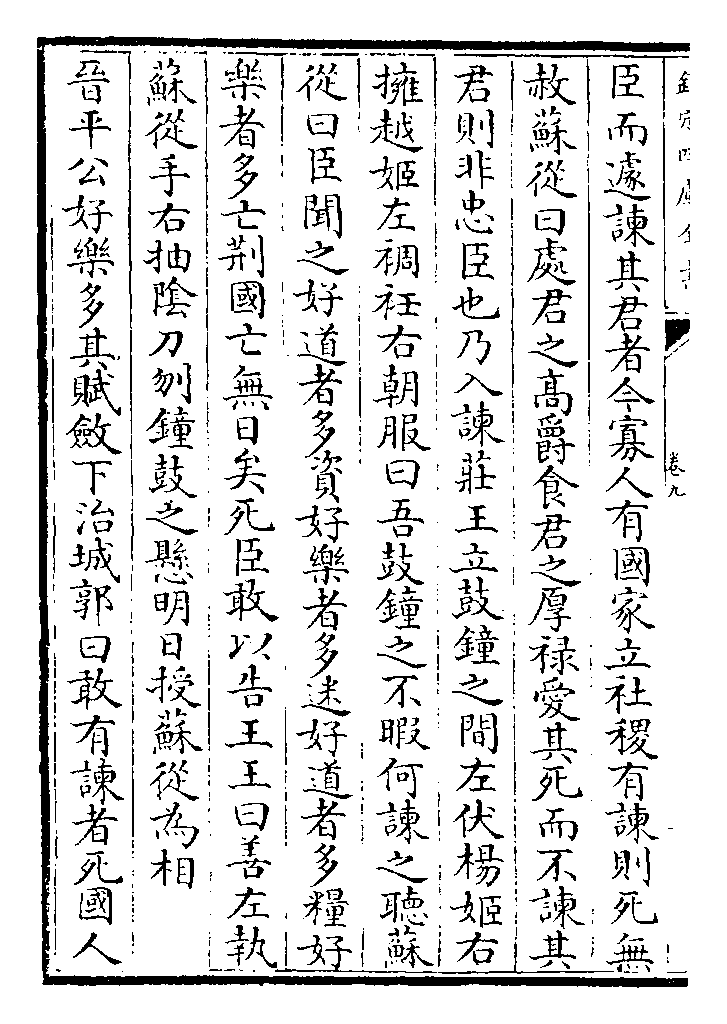 欽定四庫全書
卷九
臣而遽諫其君者今寡人有國家立社稷有諫則死無
赦蘇從曰處君之高爵食君之厚禄愛其死而不諫其
君則非忠臣也乃入諫莊王立鼓鐘之間左伏楊姬右
擁越姬左裯袵右朝服曰吾鼓鐘之不暇何諫之聽蘇
從曰臣聞之好道者多資好樂者多迷好道者多糧好
樂者多亡荆國亡無日矣死臣敢以告王王曰善左執
蘇從手右抽陰刀刎鐘鼓之懸明日授蘇從為相
晉平公好樂多其賦斂下治城郭曰敢有諫者死國人